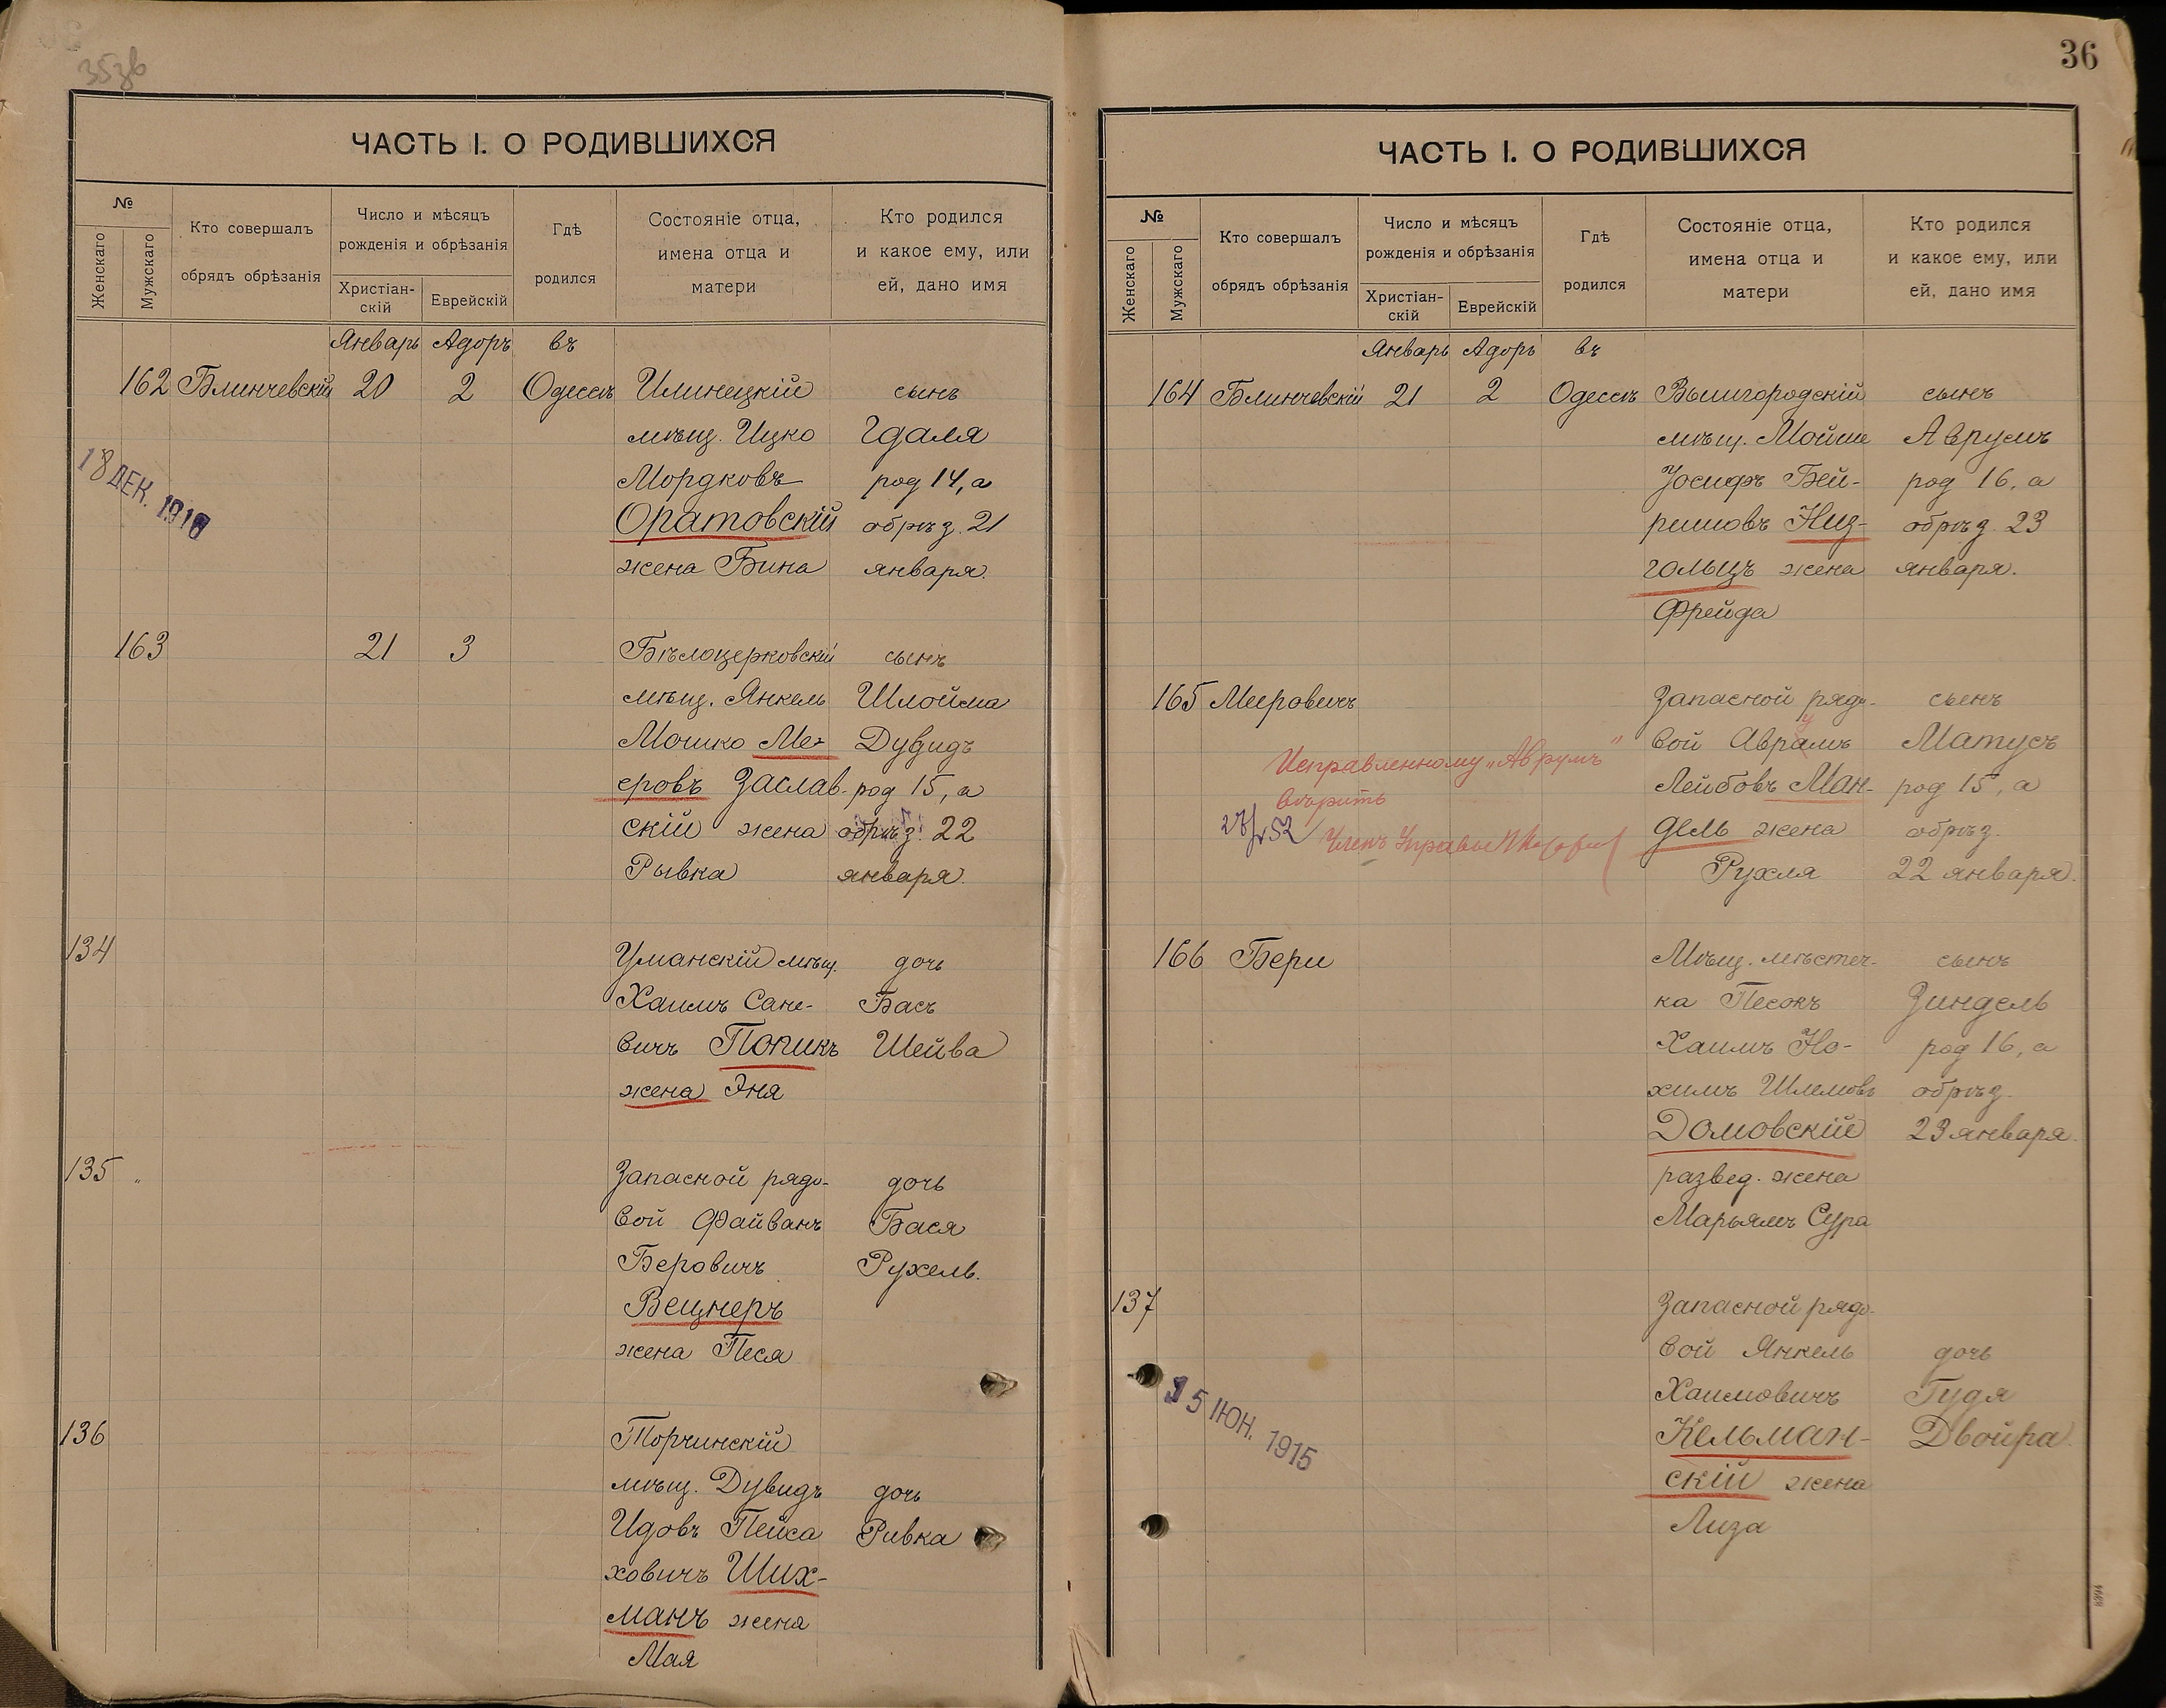 35зв
ЧАСТЬ I. О РОДИВШИХСЯ
№
Женскаго
Мужскаго
Кто совершалъ
обрядъ обрѣзанія
Число и мѣсяцъ
рожденія и обрѣзанія
Христіан-
скій
Еврейскій
Гдѣ
родился
Состояніе отца,
имена отца и
матери
Кто родился
и какое ему, или
ей, дано имя
Январь Адоръ въ
162 Блинчевскій 20 2 Одессѣ Илинецкій сынъ
мѣщ. Ицко Гдаля
Мордковъ род 14, а
Оратовскій обрѣз. 21
жена Бина января.
18 ДЕК. 1916
163 21 3 Бѣлоцерковскій сынъ
мѣщ. Янкель Шлойма
Мошко Ме- Дувидъ
еровъ Заслав- род 15, а
скій жена обрѣз. 22
Рывка января.
134 Уманскій мѣщ. дочь
Хаимъ Сане- Бася
вичъ Попикъ Шейва
жена Эня
135 " Запасной рядо- дочь
вой Файванъ Бася
Беровичъ Рухель.
Вецнеръ
жена Песя
136 Торчинскій
мѣщ. Дувидъ дочь
Идовъ Пейса Ривка
ховичъ Ших-
манъ жена
Мая
36
ЧАСТЬ I. О РОДИВШИХСЯ
№
Женскаго
Мужскаго
Кто совершалъ
обрядъ обрѣзанія
Число и мѣсяцъ
рожденія и обрѣзанія
Христіан-
скій
Еврейскій
Гдѣ
родился
Состояніе отца,
имена отца и
матери
Кто родился
и какое ему, или
ей, дано имя
Январь Адоръ въ
164 Блинчевскій 21 2 Одессѣ Вышгородскій сынъ
мѣщ. Мойше Аврумъ
Іосифъ Бей- род 16, а
ришовъ Низ- обрѣз. 23
гольцъ жена января.
Фрейда
165 Меировичъ Запасной рядо- сынъ
вой Аврамъ Матусъ
у
Лейбовъ Ман- род 15, а
дель жена обрѣз.
Рухля 22 января.
Исправленному „Аврумъ"
вѣрить
Членъ Управы
166 Бери Мѣщ. мѣстеч- сынъ
ка Песокъ Зиндель
Хаимъ Но- род 16, а
химъ Шлемовъ обрѣз.
Домовскій 23 января.
развед. жена
Марьямъ Сура
137 Запасной рядо-
вой Янкель дочь
Хаимовичъ Гудя
Кельман- Двойра
скій жена
Лиза
15 ІЮН. 1915